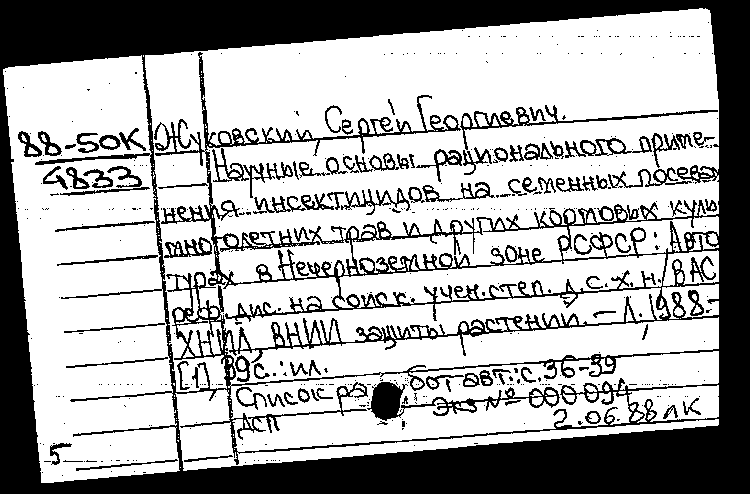 88-50К Жуковский, Сергей Георгиевич.
4833 Научные основы рационального приме-
нения инсектицидов на семенных посевах
многолетних трав и других кормовых куль-
турах в Нечерноземной зоне РСФСР: Авто-
реф. дис. на соиск. учен. степ. д. с. х. н. / ВАС
ХНИЛ, ВНИИ защиты растений. - Л., 1988. -
39 с.: ил.
Список работ авт.: с. 36-39
ДСП Экз № 000 094
2.06.88 лк
5